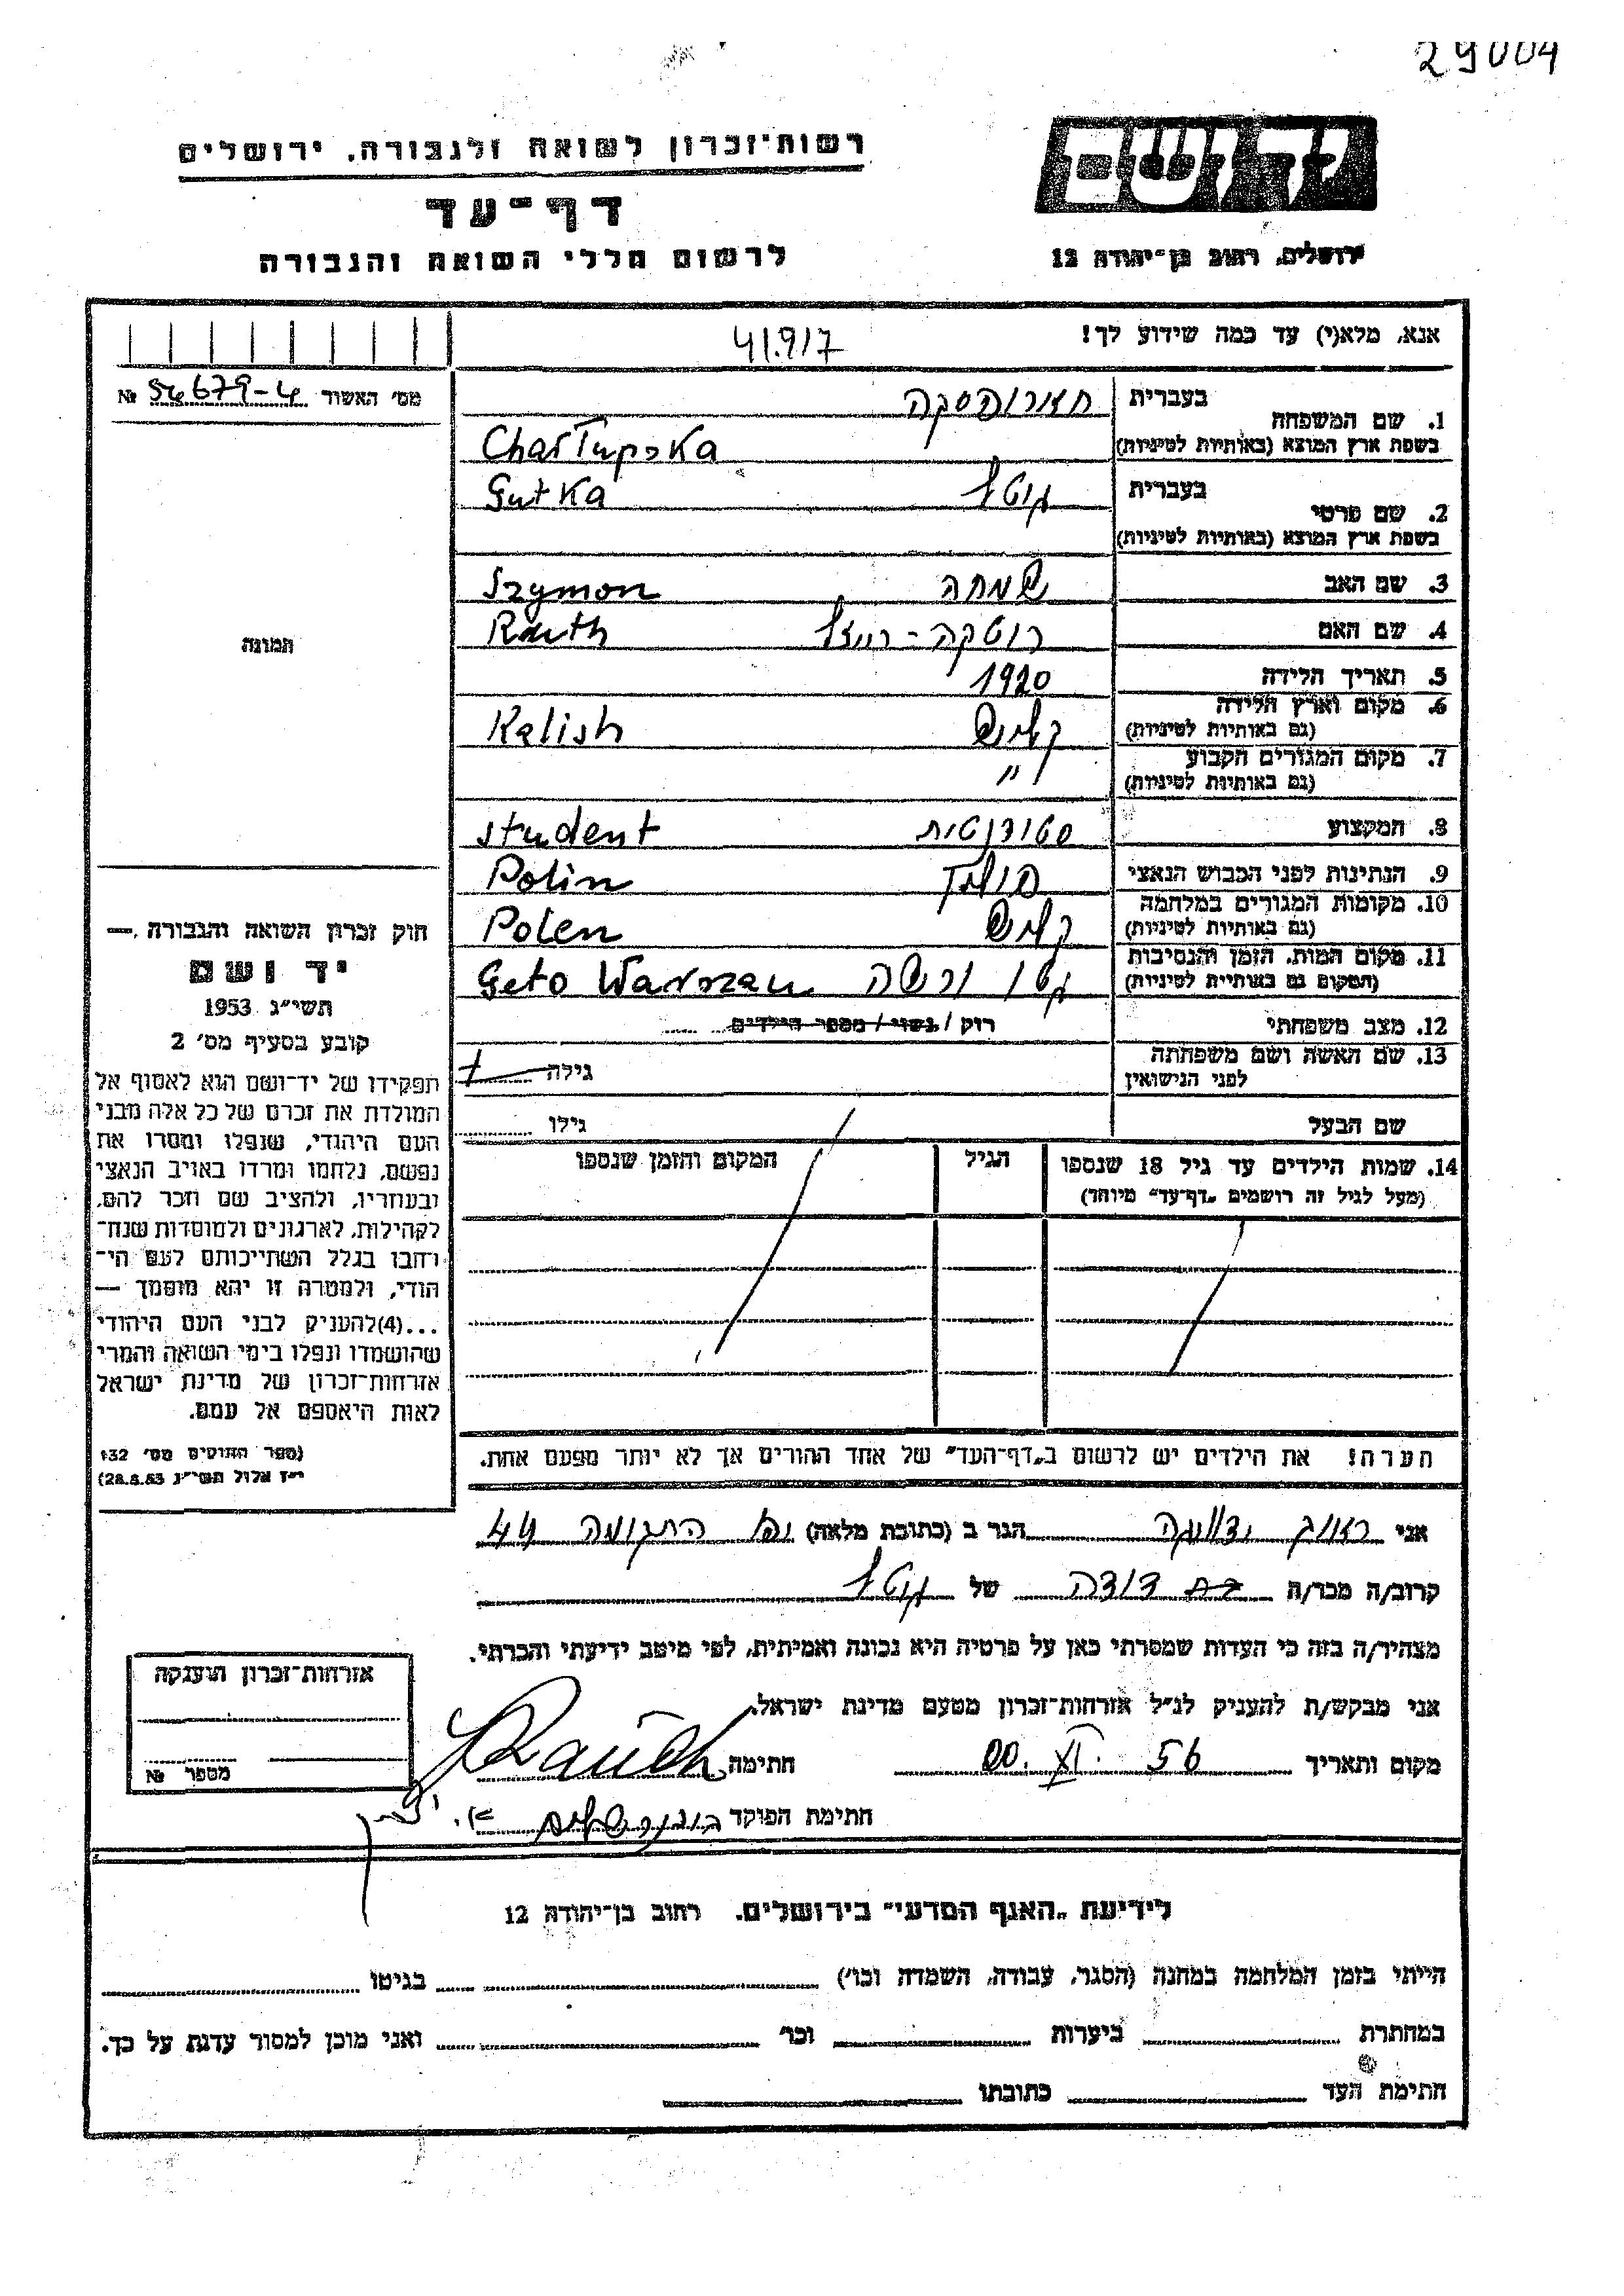 29004
רשות־זכרון לשואה ולגבורה, ירושלים
יד ושם
דף־עד
לרשום חללי השואה והגבורה
ירושלים, רחוב בן־יהודה 12
אנא, מלא(י) עד כמה שידוע לך!
41.917
מס׳ האשור № 56679-4
תמונה
1. שם המשפחה
בעברית
בשפת ארץ המוצא (באותיות לטיניות)
Charłupska
2. שם פרטי
בעברית גוטל
בשפת ארץ המוצא (באותיות לטיניות)
Gutka
3. שם האב שמחה Szymon
4. שם האם
5. תאריך הלידה 1920
6. מקום וארץ הלידה קליש Kalish
(גם באותיות לטיניות)
7. מקום המגורים הקבוע "
(גם באותיות לטיניות)
8. המקצוע סטודנטית student
9. הנתינות לפני הכבוש הנאצי פולין Polin
10. מקומות המגורים במלחמה קליש Polen
(גם באותיות לטיניות)
11. מקום המות, הזמן והנסיבות גטו ורשה Geto Warszau
(המקום גם באותיות לטיניות)
12. מצב משפחתי רוק / נשוי / מספר הילדים
13. שם האשה ושם משפחתה
לפני הנישואין
גילה
שם הבעל גילו
14. שמות הילדים עד גיל 18 שנספו הגיל המקום והזמן שנספו
(מעל לגיל זה רושמים „דף־עד״ מיוחד)
הערה! את הילדים יש לרשום ב„דף־העד״ של אחד ההורים אך לא יותר מפעם אחת.
חוק זכרון השואה והגבורה, —
יד ושם
תשי״ג 1953
קובע בסעיף מס׳ 2
תפקידו של יד־ושם הוא לאסוף אל
המולדת את זכרם של כל אלה מבני
העם היהודי, שנפלו ומסרו את
נפשם, נלחמו ומרדו באויב הנאצי
ובעוזריו, ולהציב שם וזכר להם,
לקהילות, לארגונים ולמוסדות שנח־
רבו בגלל השתייכותם לעם הי־
הודי, ולמטרה זו יהא מוסמך —
...(4)להעניק לבני העם היהודי
שהושמדו ונפלו בימי השואה והמרי
אזרחות־זכרון של מדינת ישראל
לאות היאספם אל עמם.
(ספר החוקים מס׳ 132
י״ז אלול תשי״ג 28.8.53)
אני הגר ב (כתובת מלאה) יפו התקומה 44
קרוב/ה מכר/ה בת דודה של גוטל
מצהיר/ה בזה כי העדות שמסרתי כאן על פרטיה היא נכונה ואמיתית, לפי מיטב ידיעתי והכרתי.
אני מבקש/ת להעניק לנ״ל אזרחות־זכרון מטעם מדינת ישראל.
מקום ותאריך 20. XI. 56 חתימה
חתימת הפוקד
אזרחות־זכרון הוענקה
מספר №
לידיעת „האגף המדעי״ בירושלים, רחוב בן־יהודה 12
הייתי בזמן המלחמה במחנה (הסגר, עבודה, השמדה וכו׳) בגיטו
במחתרת ביערות וכו׳ ואני מוכן למסור עדות על כך.
חתימת העד כתובתו